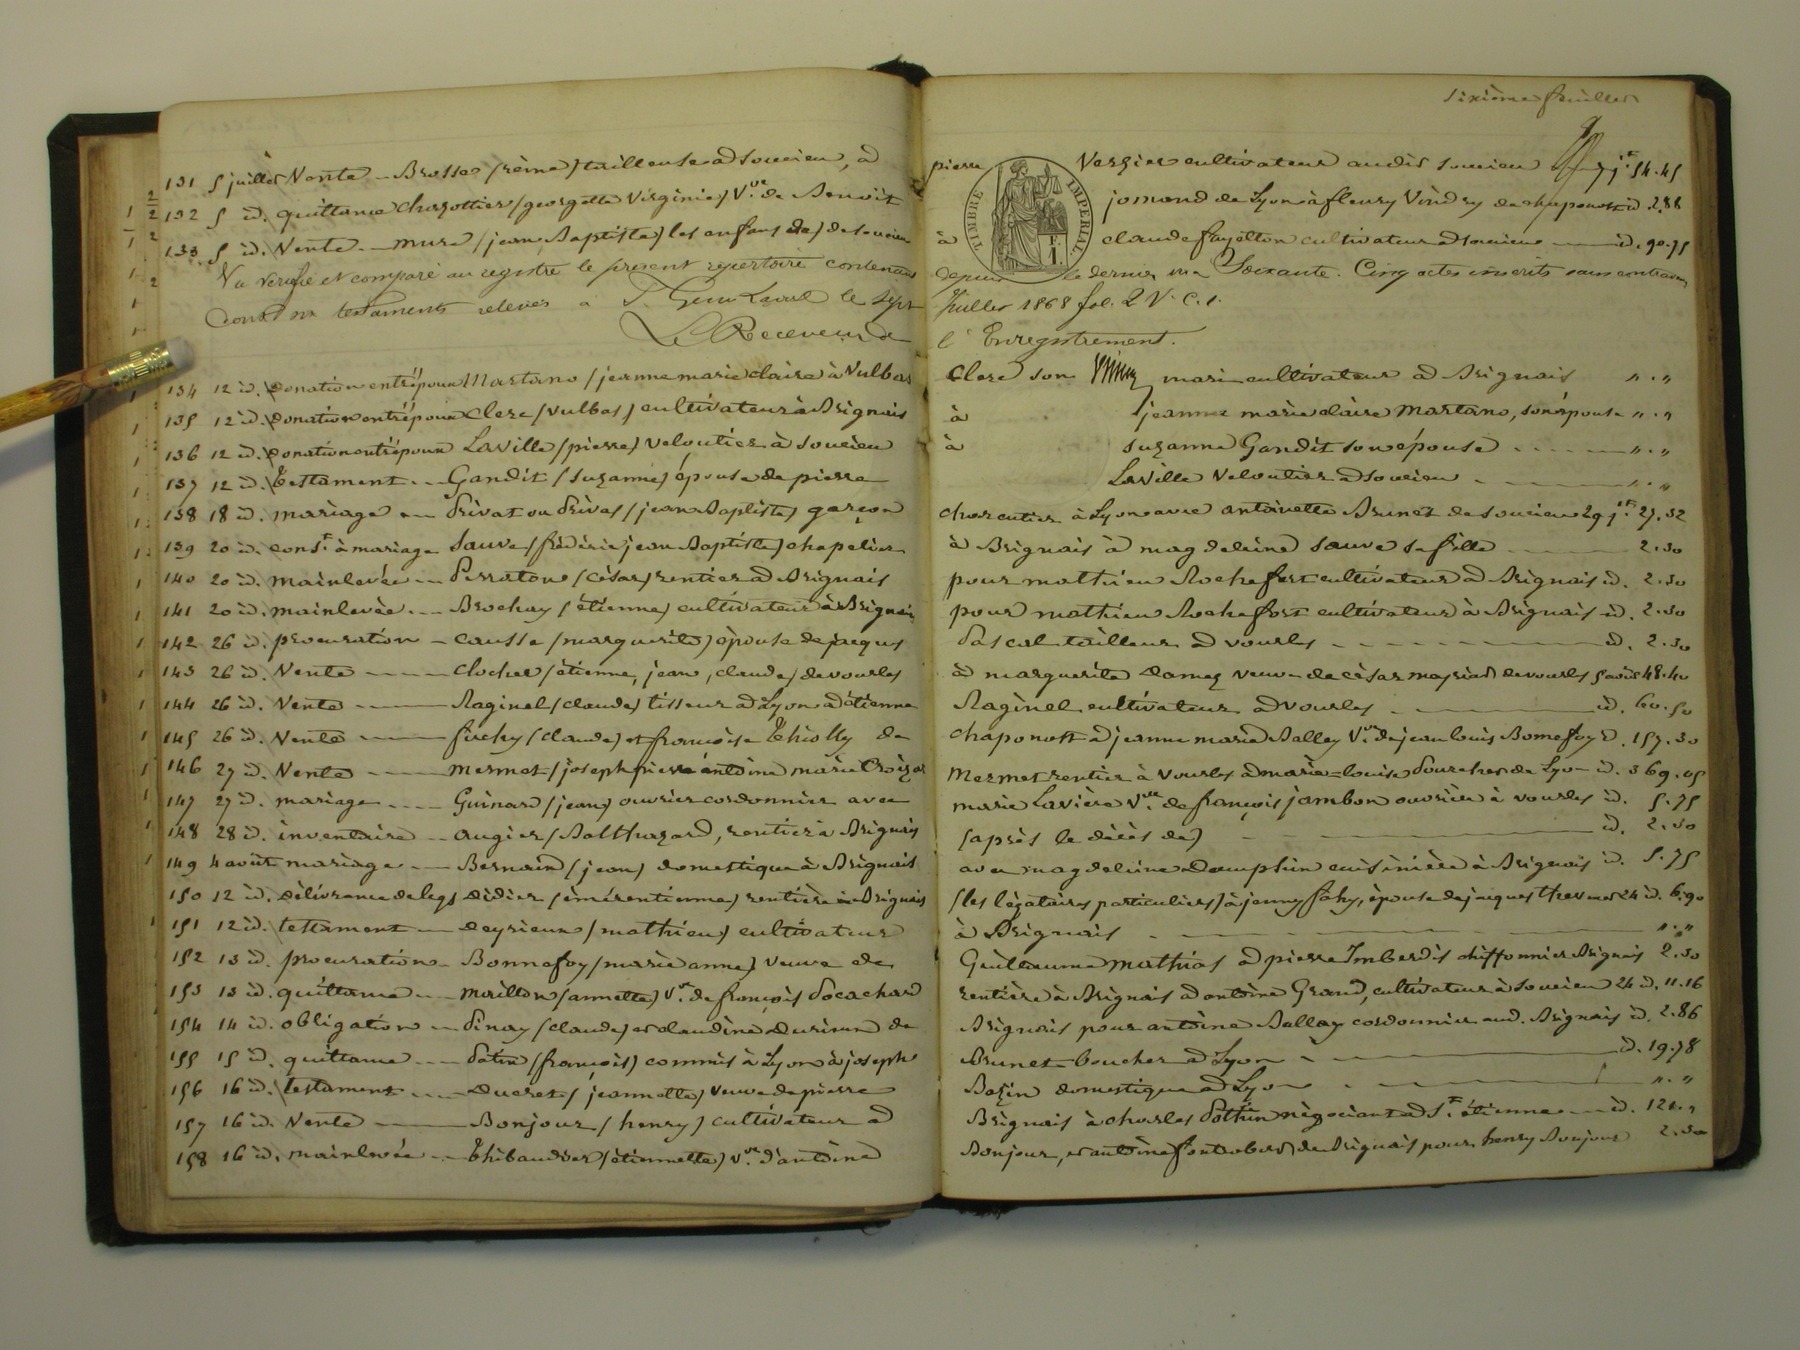 sixième feuillet
131 5 juillet Vente - Brosse (reine) tailleuse à soucieu, à pierre Verzier cultivateur audit soucieu 7 jt 54.45
TIMBRE IMPERIAL
132 5 id. quittance Chazottier (georgette Virginie) Vve de Benoit jomand de Lyon à fleury Vindry de chaponost id 2.88
133 5 id. Vente - mure (jean Baptiste) les enfans de) de soucieu à claude fayolton cultivateur à soucieu id. 90.75
Vu verifié et comparé au registre le present repertoire contenant depuis le dernier visa Soixante. Cinq actes inscrits sans contravon
dont testaments relevés a St Genis Laval le sept Juillet 1868 fol. 2 V. C. 1.
Le Receveur de l'Enregistrement.
134 12 id. Donation entr'époux Martano (jeanne marie claire à Vulbas Clerc son mari cultivateur à Brignais "."
135 12 id. Donation entr'époux Clerc (Vulbas) cultivateur à Brignais à jeanne marie claire Martano, son épouse "."
136 12 id. Donation entr'époux Laville (pierre) veloutier à soucieu à suzanne Gandit son épouse "."
137 12 id. Testament - Gandit (Suzanne) épouse de pierre Laville Veloutier à soucieu "."
138 18 id. mariage - Privat ou Privas (jean Baptiste) garçon charcutier à Lyon avec antoinette Brunet de soucieu 29 jt. 27.32
139 20 id. const à mariage Sauve (frédéric jean Baptiste) chapelier à Brignais à magdeleine sauve sa fille 2.30
140 20 id. mainlevée - Perraton (César) rentier à Brignais pour mathieu Rochefort cultivateur à Brignais id. 2.30
141 20 id. mainlevée - Brochay (étienne) cultivateur à Brignais pour mathieu Rochefort cultivateur à Brignais id. 2.30
142 26 id. procuration - causse (marguerite) épouse de jacques Pascal tailleur à vourles id. 2.30
143 26 id. Vente - clocher (étienne, jean, claude) de vourles à marguerite Damez veuve de césar mayriad de vourles 5 août 48.40
144 26 id. Vente - Raginel (claude) tisseur à Lyon à étienne Raginel cultivateur à vourles id. 60.50
145 26 id. Vente - firchy (claude) et françoise Thiolly de chaponost à jeanne marie Balley Vve de jean louis Bonnefoy id. 157.30
146 27 id. Vente - mermet (joseph pierre antoine marie Croizat Mermet rentier à vourles à marie-louise Pourcher de Lyon id. 369.05
147 27 id. mariage - Guinard (jean) ouvrier cordonnier avec marie Lavière Vve de françois jambon ouvrière à vourles id. 5.75
148 28 id. inventaire - augier (Balthazard, rentier à Brignais (après le décès de) id. 2.30
149 4 août mariage - Bernard (jean) domestique à Brignais avec magdeleine Dauphin cuisinière à Brignais id. 5.75
150 12 id. Délivrance de legs Didier (émérentienne) rentière à Brignais (les légataires particuliers) à jenny faky, épouse de jacques 24 id. 6.90
151 12 id. testament - Deyrieux (mathieu) cultivateur à Brignais "."
152 13 id. procuration - Bonnefoy (marie anne) veuve de Guillaume Mathias à pierre Imberdis chiffonnier Brignais 2.30
153 13 id. quittance - Marillon (annette) Vve de françois Pocachard rentière à Brignais à antoine Grand, cultivateur à soucieu 24 id. 11.16
154 14 id. obligation - Pinay (claude) et claudine Durieux de Brignais pour antoine Balley cordonnier aud. Brignais id. 2.86
155 15 id. quittance - Patin (françois) commis à Lyon à joseph Brunet boucher à Lyon id. 19.78
156 16 id. testament - Ducret (jeannette) veuve de pierre Bazin domestique à Lyon "."
157 16 id. Vente - Bonjour (henry) cultivateur à Brignais à charles Pothin négociant à St. étienne id. 121."
158 16 id. mainlevée - Thibaudier (étiennette) Vve d'antoine Bonjour, et antoine fontrobert) de Brignais pour henry Bonjour 2.30